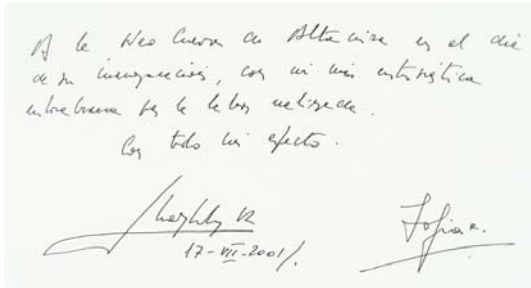 A la Neo Cueva de Altamira en el día
de su inauguración, con mi más entusiástica
enhorabuena por la labor realizada.
Con todo mi afecto.
Juan Carlos R
17-VII-2001
Sofía R.